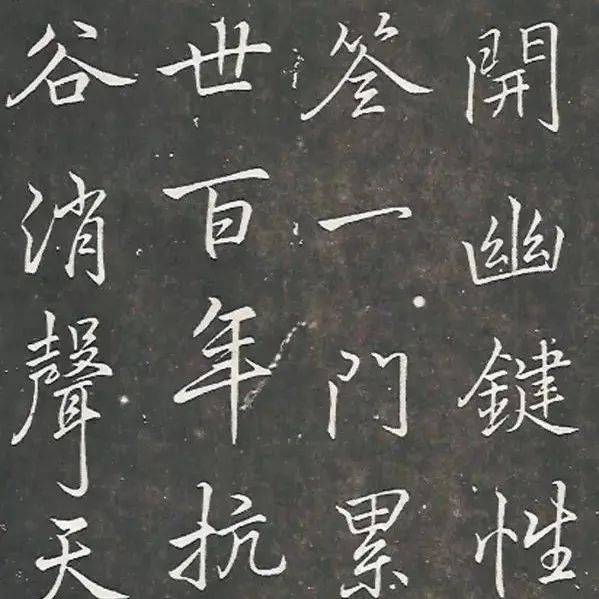 開幽鍵性
筌一門累
世百年抗
谷消聲天